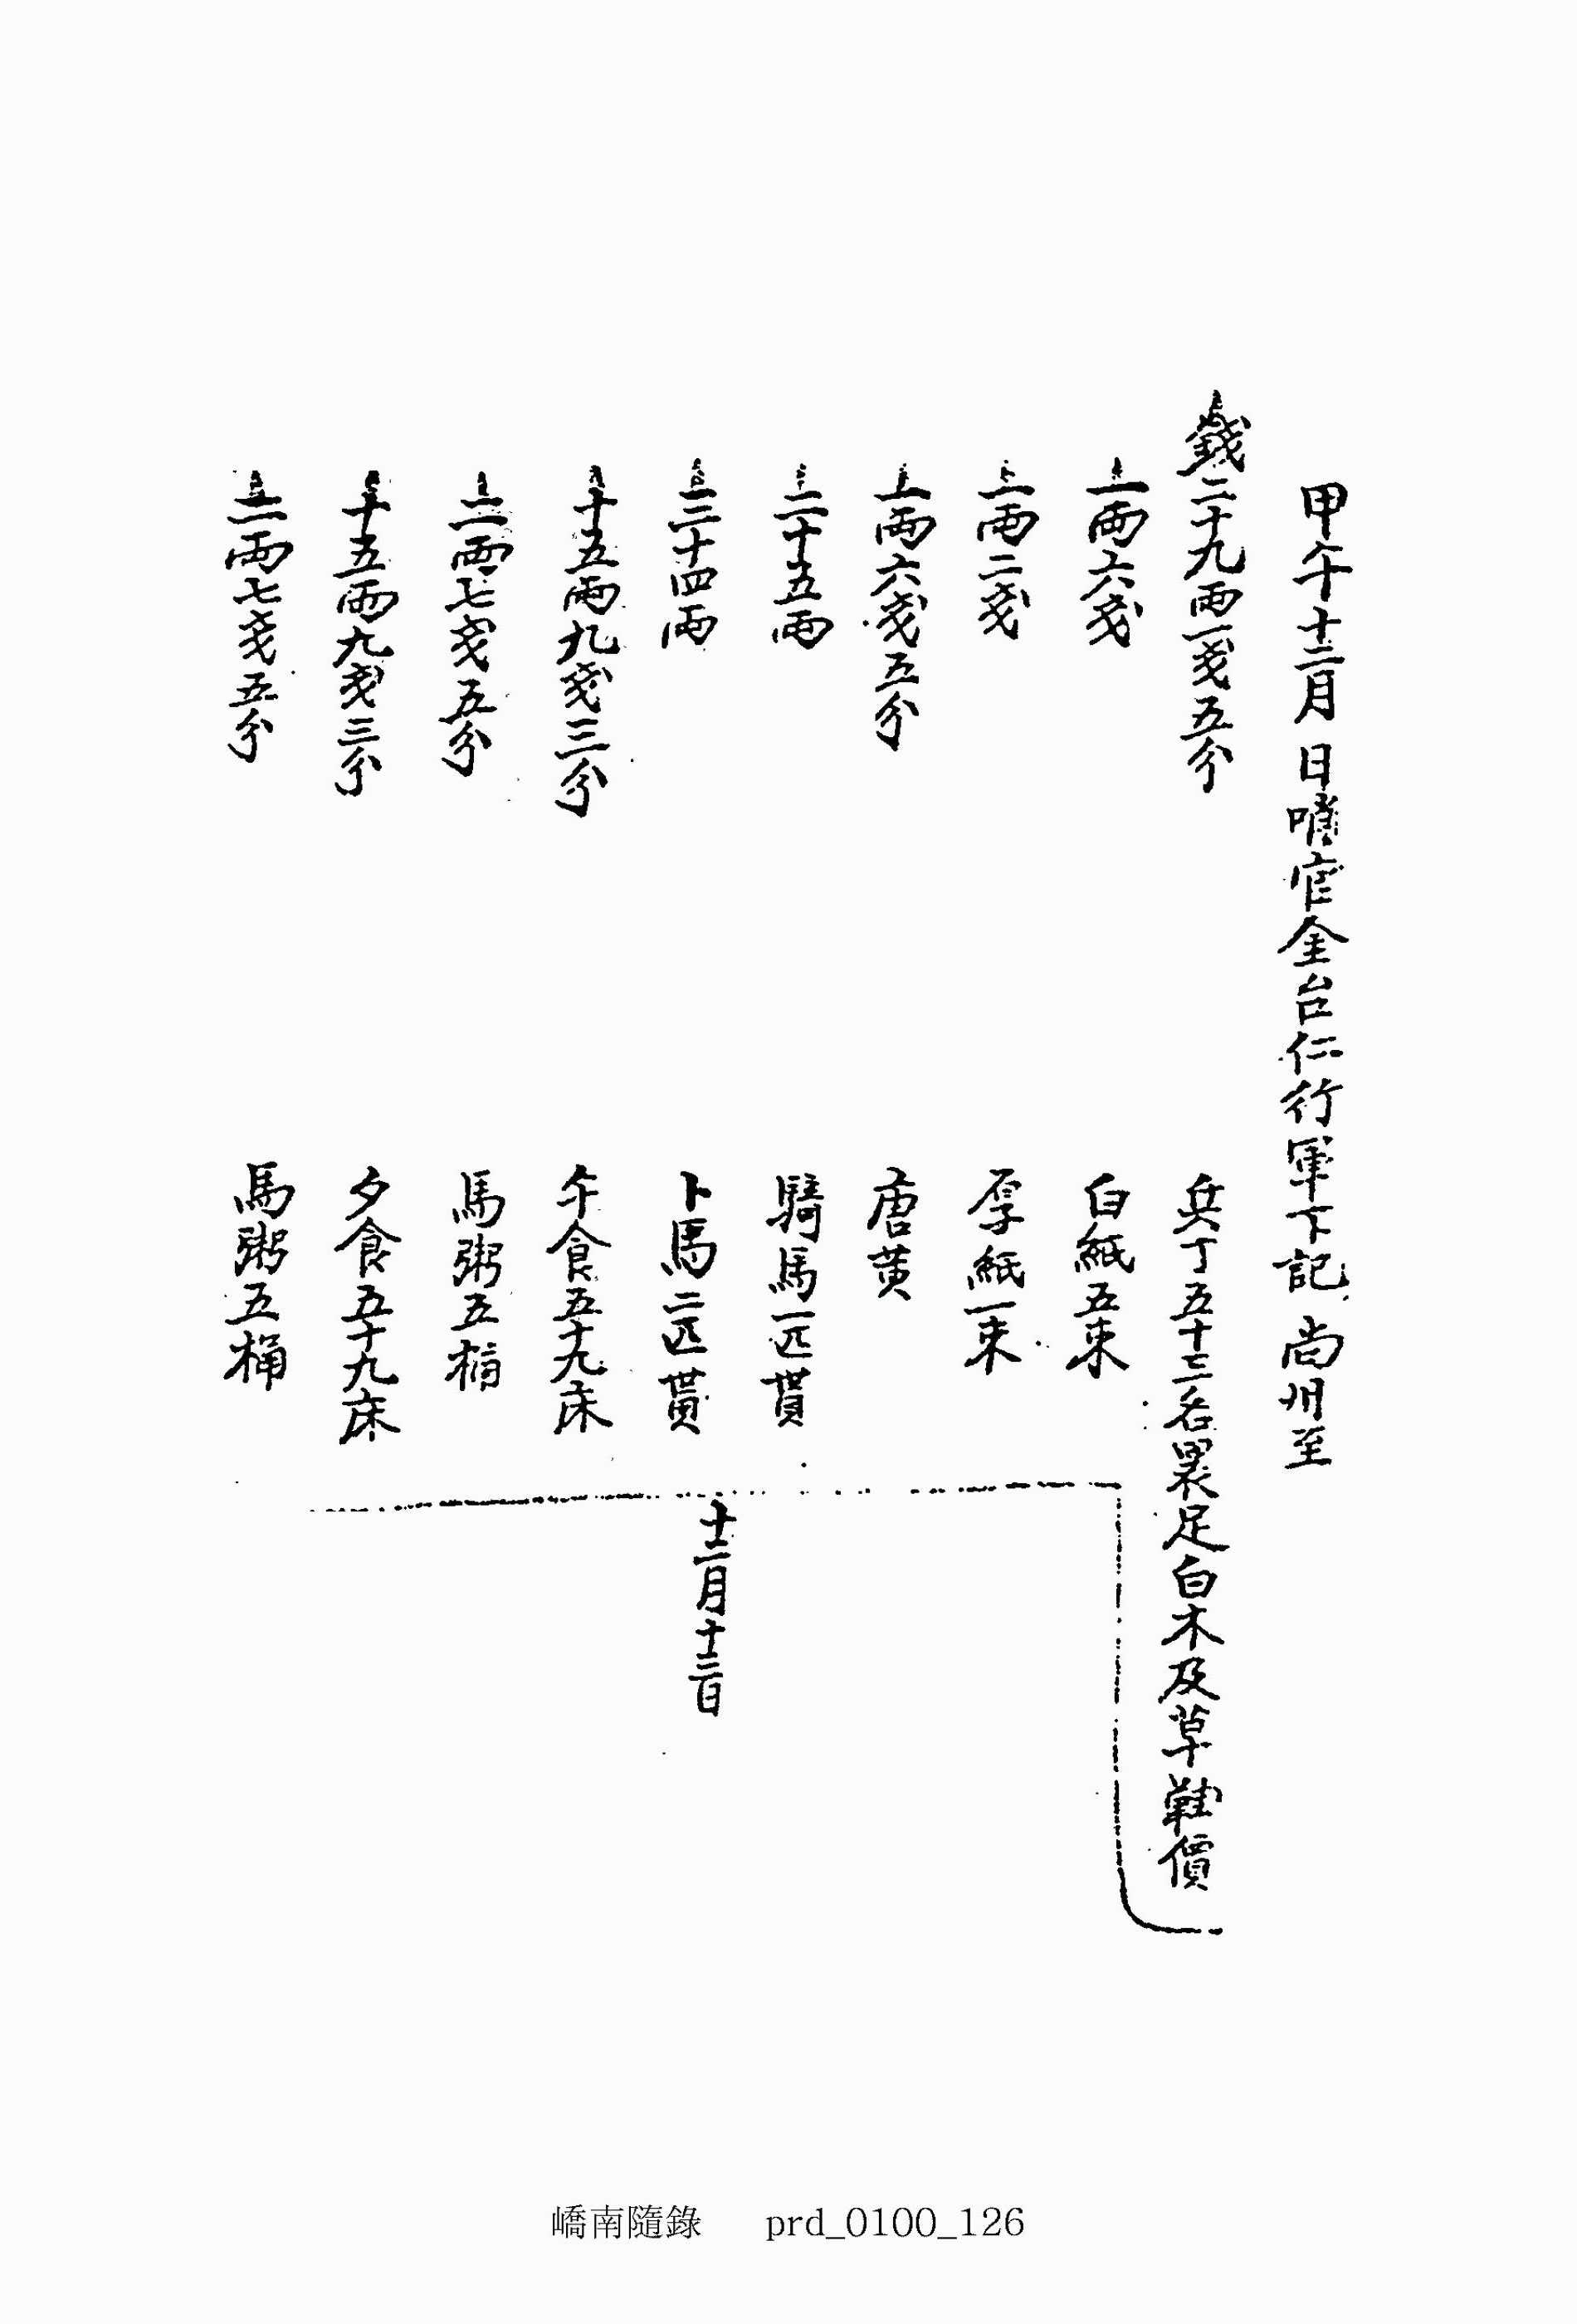 甲午十二月 日哨官金台仁行軍下記 尚州至
錢二十九兩一戔五分 兵丁五十三名裹足白木及草鞋價
一兩六戔 白紙五束
一兩二戔 厚紙一束
一兩六戔五分 唐黃
二十五兩 騎馬一匹貰
三十四兩 卜馬二匹貰
十二月十二日
十五兩九戔三分 午食五十九床
二兩七戔五分 馬粥五桶
十五兩九戔三分 夕食五十九床
二兩七戔五分 馬粥五桶
嶠南隨錄 prd_0100_126